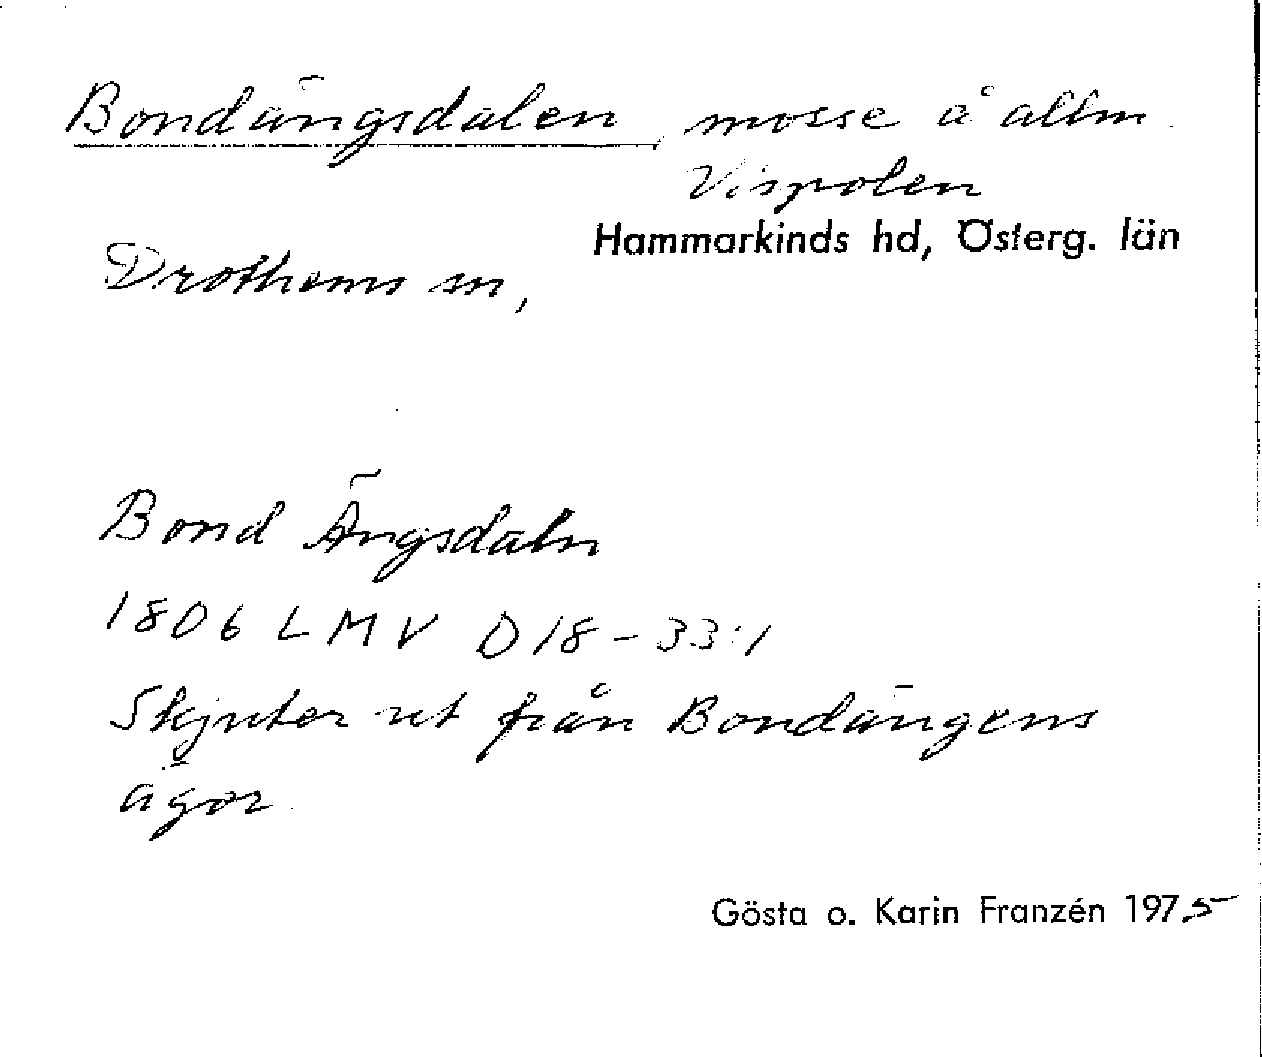 Bondängsdalen, mosse å allm.
Vispolen
Hammarkinds hd, Österg. län
Drothems sn,
Bond Ängsdaln
1806 LMV D18-33:1
Skjuter ut från Bondängens
ägor.
Gösta o. Karin Franzén 1975